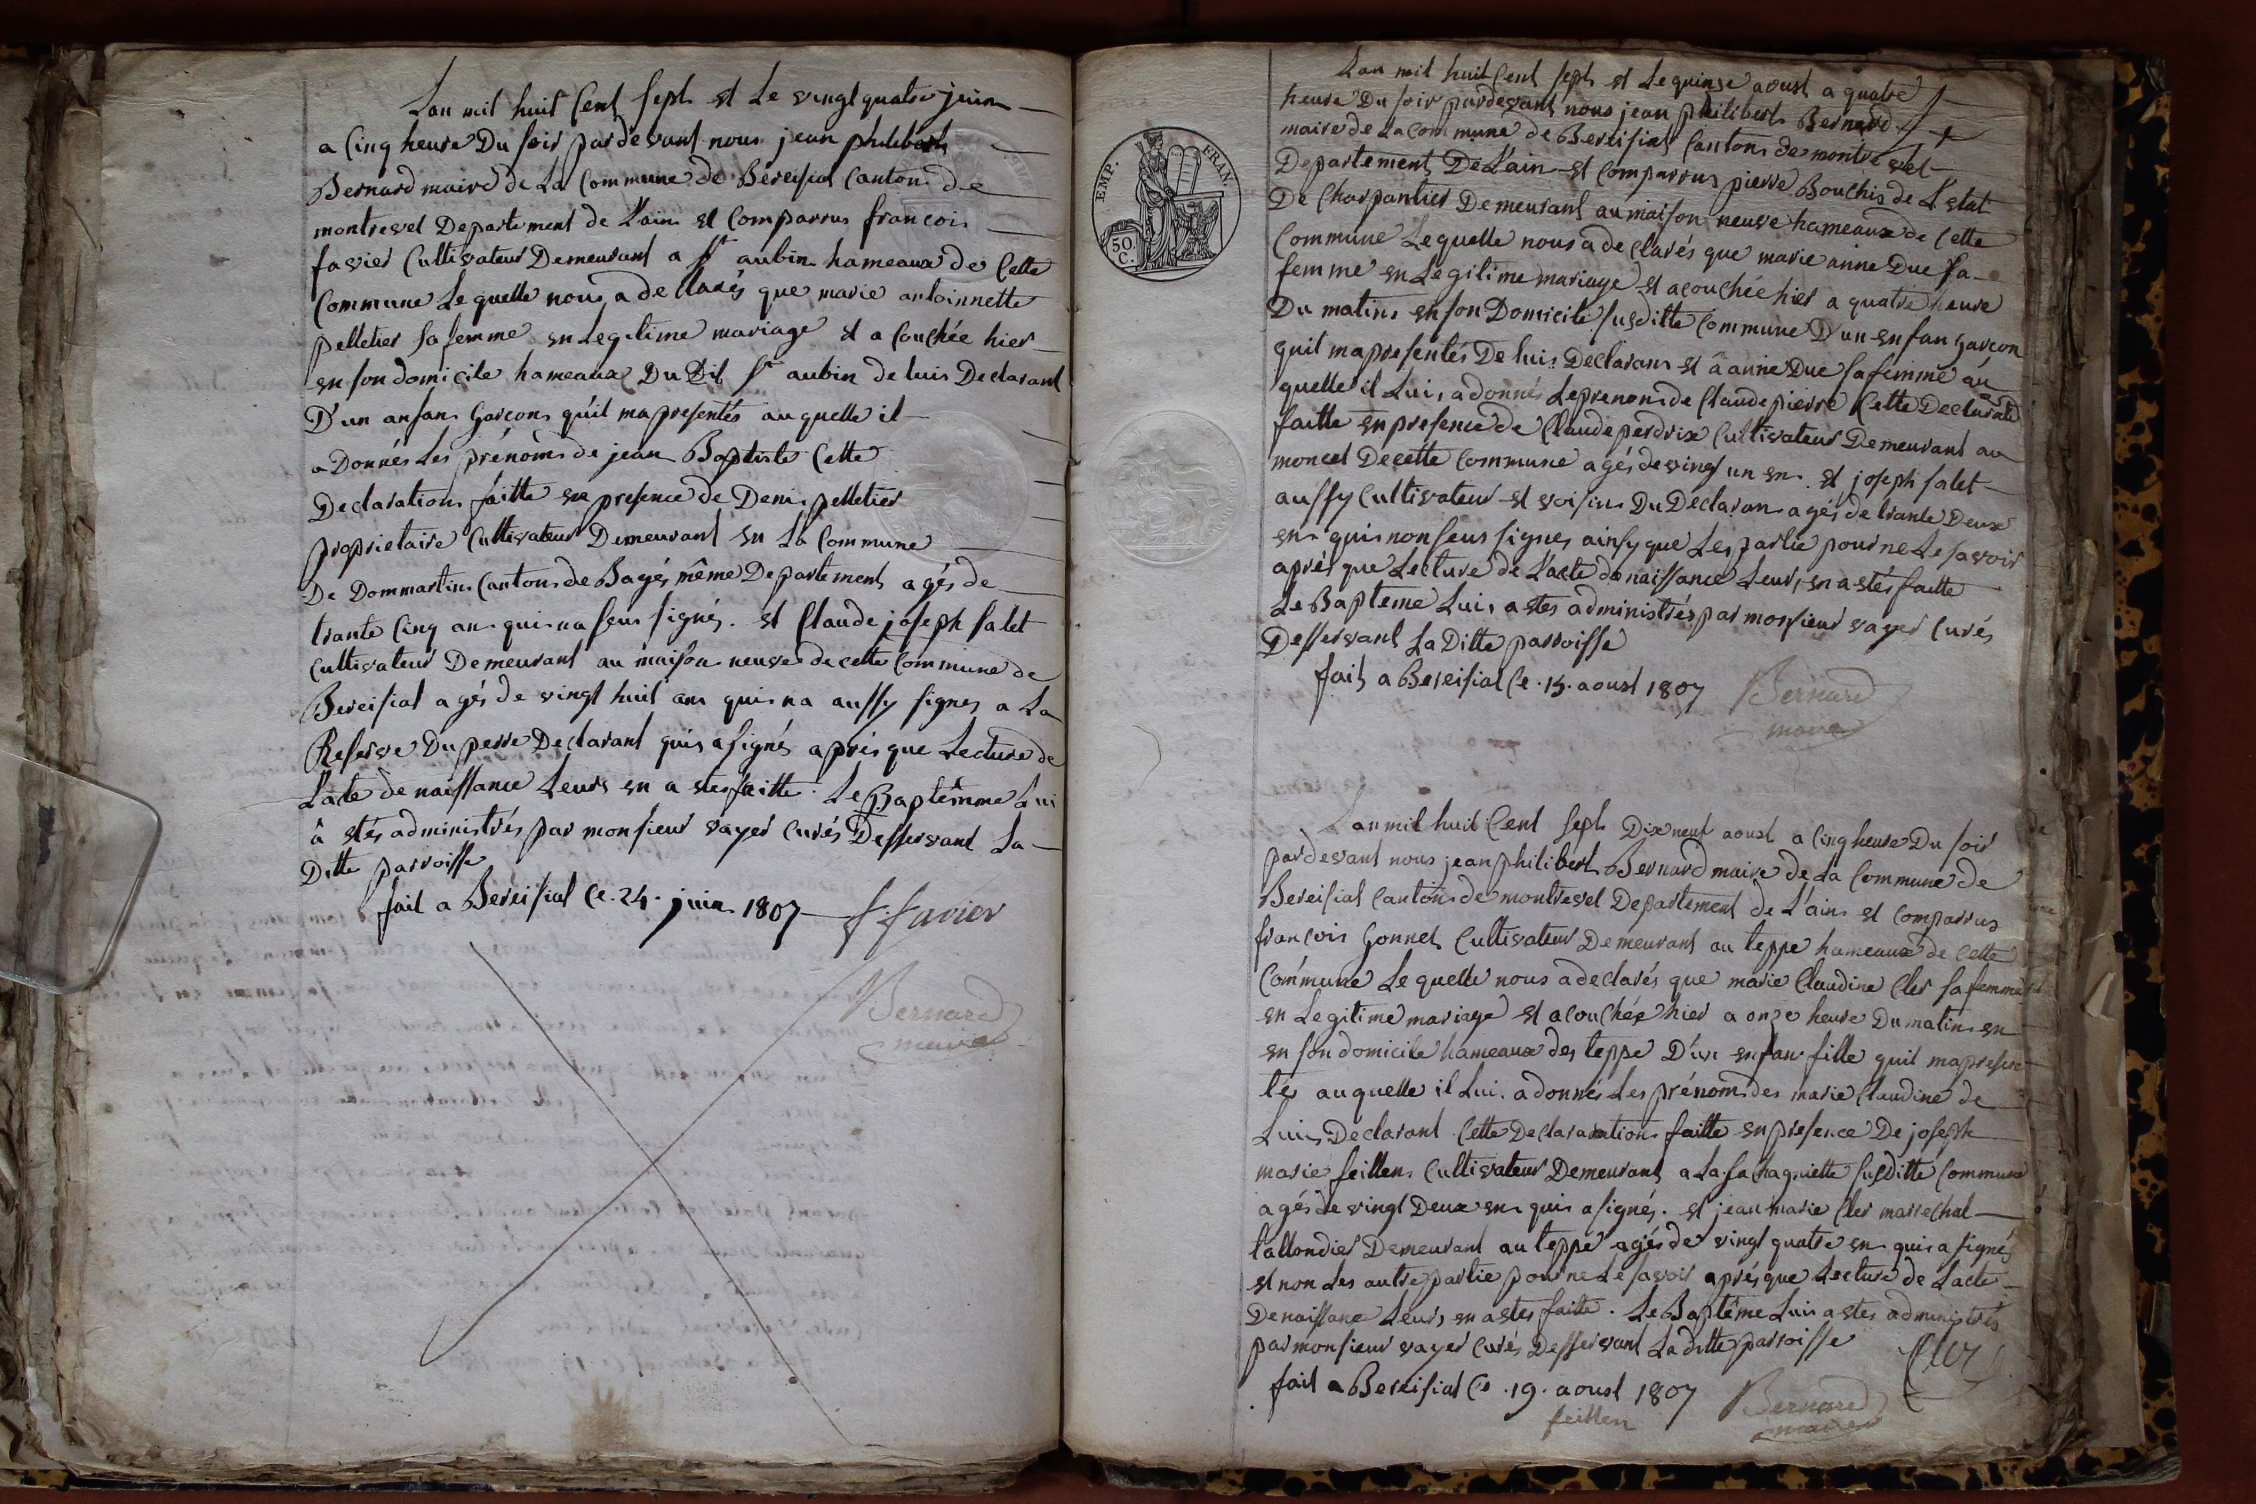 Lan mil huit Cent sept et Le vingt quatre juin
a Cinq heure Du soir pardevant nous jean philibert
Bernard maire de La Commune de Béreisiat Canton de
montrevel Departement de L'ain et Comparrus francois
favier Cultivateur Demeurant a St aubin hameaux de Cette
Commune Le quelle nous a de Clarés que marie antoinnette
pelletier sa femme en Legitime mariage et a Couchée hier
en son domicile hameaux Du Dit St aubin de luis Declarant
D'un anfans Garcons qu'il ma presentés au quelle il
a Donnés Les prénoms de jean Baptiste Cette
Declarations faitte en presence de Denis pelletier
proprietaire Cultivateur Demeurant en La Commune
De Dommartins Cantons de Bagés même Departements agés de
trante Cinq ans quis na seus signés. et Claude joseph salet
Cultivateur Demeurant au maison neuve de cette Commune de
Bereisiat agés de vingt huit ans quis na aussy signes a La
Reserve Du perre Declarant quis a signés aprés que Lecture de
L'acte de naissance Leurs en a stes faitte. Le Baptêmme Lui
â stés administrés par monsieur vayer curés Desservant La
Ditte parroisse
fait a Bereisiat Ce. 24. juin 1807
f. favier
Bernard
maire
EMP. FRAN.
50. C.
Lan mil huit Cent sept et Le quinse aoust a quatre
heure Du soir pardevant nous jean philibert Bernard
maire de La Commune de Bereisiat Cantons de montrevel
Departements De L'ain et Comparrus pierre Bouchis de L'etat
De Charpantier Demeurant au maison neuve hameaux de Cette
Commune Le quelle nous a de Clarés que marie anne Duc sa
femme en Legitime mariage et acouchée hier a quatre heure
Du matins en son Domicile susditte Commune D'un enfan garcon
quil ma presentés De luis Declarans et â anne Duc sa femme au
quelle il Luis a donnés Leprenons de Claude pierre Cette Declarati
faitte en presence de Claude perdrix Cultivateur Demeurant au
moncel De cette Commune agés de vingt un ens. et joseph salet
aussy Cultivateur et voisins Du Déclarans agés de trante Deux
ens quis non seus signes ainsy que Les partie pour ne Le savoir
aprés que Lecture de L'acte de naissance Leurs en a stés faitte
Le Bapteme Luis a stes administrés par monsieur vayer Curés
Desservant La Ditte parroisse
fait a Bereisiat Ce. 15. aoust 1807
Bernard
maire
Lan mil huit Cent sept Dix neuf aoust a Cinq heure Du soir
pardevant nous jean philibert Bernard maire de La Commune de
Bereisiat Cantons de montrevel Departement de L'ain et Comparrus
francois Gonnet Cultivateur Demeurant au teppe hameaux de Cette
Commune Le quelle nous a declarés que marie Claudine Cler sa femme
en Legitime mariage et acouchée hier a onze heure Du matins en
en son domicile hameaux des teppe D'un enfan fille quil ma presen
tés au quelle il Lui a donnés Les prénoms des marie Claudine de
Luis Declarant Cette Declaradations faitte en presence De joseph
marie feillens Cultivateur Demeurant a La susditte Commune
agés de vingt Deux ens quis a signés. et jean marie Cler marrechal
tallondier Demeurant au teppe agés de vingt quatre ens quis a signés
et non Les autre partie pour ne Le savoir aprés que Lecture de L'acte
De naissance Leurs en a stes faitte. Le Baptême Luis a stes administrés
par monsieur vayer Curés Desservant La ditte parroisse
Cler
fait a Bereisiat Ce. 19. aoust 1807
feillen
Bernard
maire